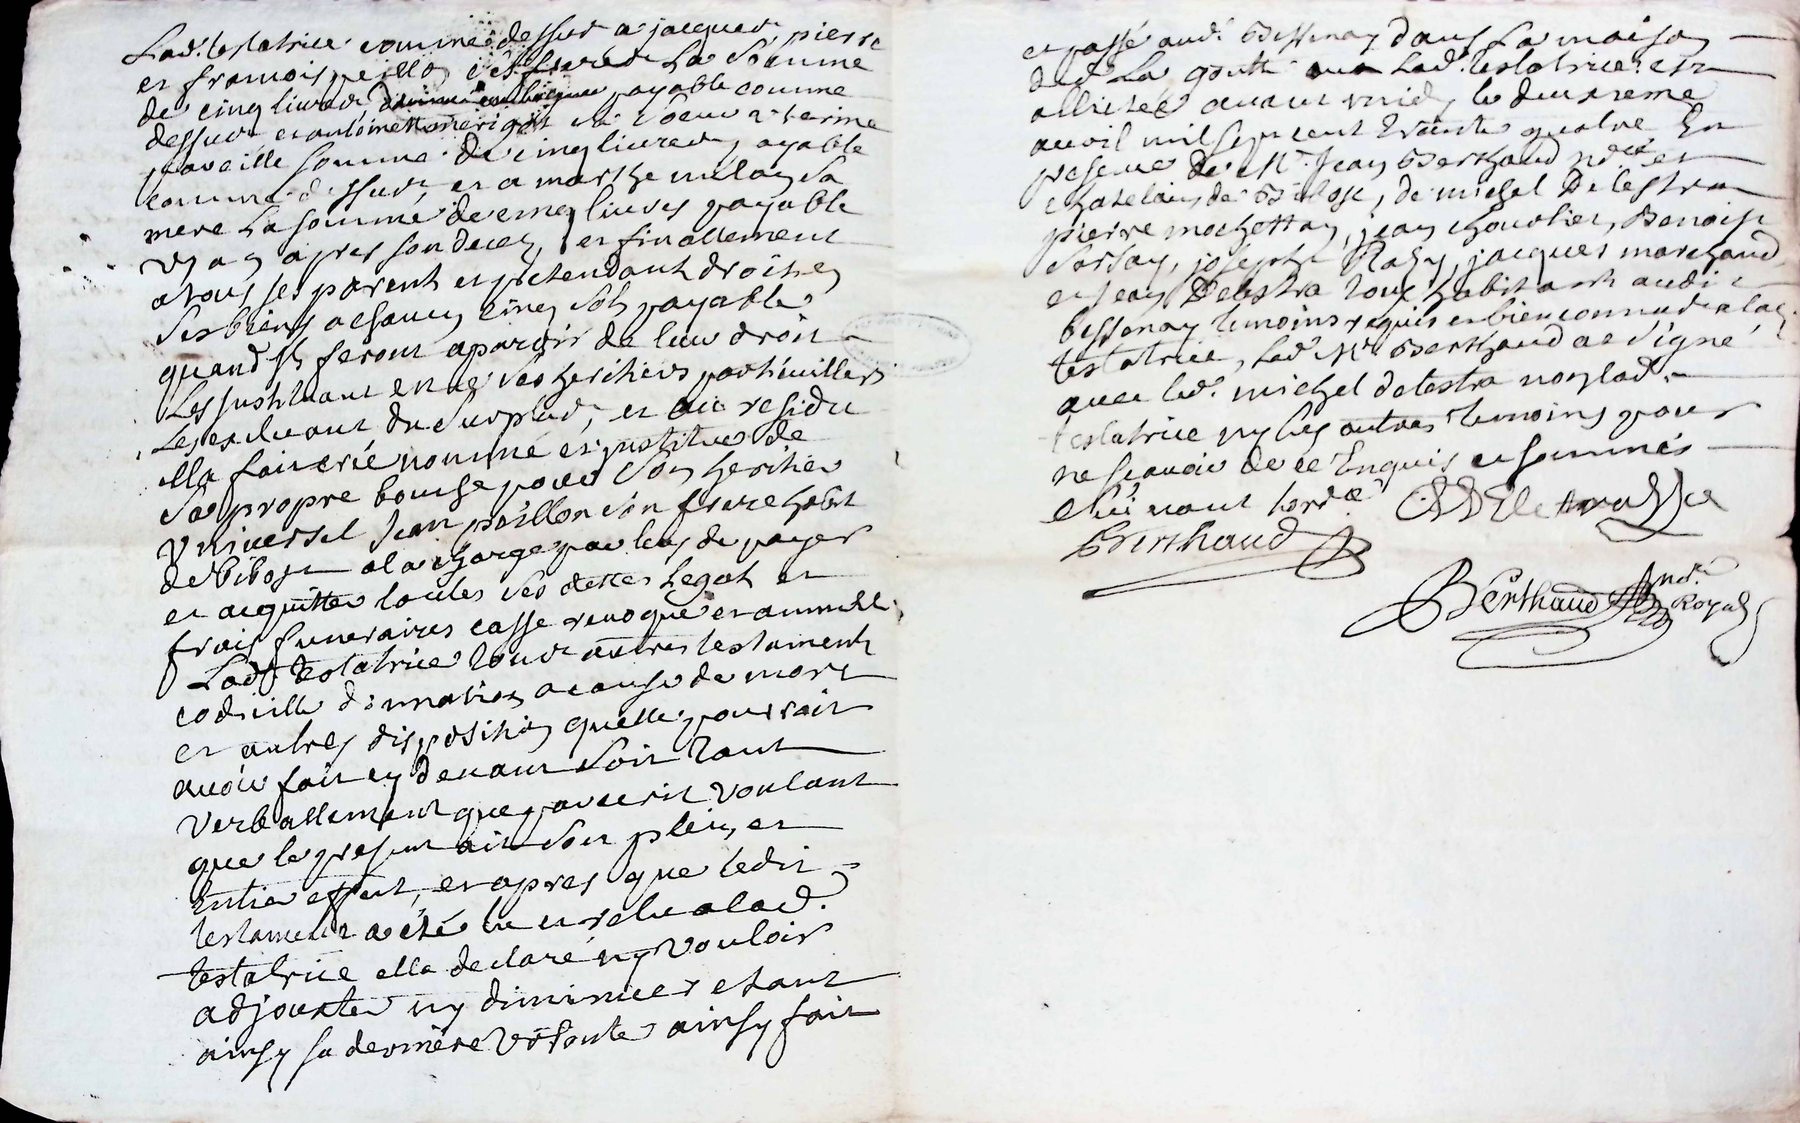 Lad. testatrice comme dessus a jacques, pierre
et francois peillon ses freres La Somme
de cinq livres payable comme
dessus et antoinette merigot sa soeur uterine
pareille somme de cinq livres payable
comme dessus, et a marthe milan Sa
mere La somme de cinq livres payable
un an apres son deces, et finallement
a tous ses parents et pretendant droits en
Ses biens a chacun cinq sols payable
quand ils feront aparoir de leur droit
Les instituant en ce ses heritiers particuliers
Les excluant du Surplus, et au residu
ella fait crée nommé et institue de
Sa propre bouche pour Son heritier
Universel Jean peillon son frere habit
de Bibost a la charge par luy de payer
et acquitter toutes ses dettes legats et
frais funeraires casse revoque et annulle
Lad. testatrice tous autres testaments
codicille donnation a cause de mort
et autres disposition quelle pourroit
avoir fait cy devant soit tant
verballement que par ecrit voulant
que le present ait son plein et
Entier effect, et apres que ledit
testament a été lu et relu a lad.
testatrice ella declaré ny vouloir
adjouter ny diminuer etant
ainsy sa derniere volonte ainsy fait
et passé aud. Bessenay dans La maison
de La goutte ou Lad. testatrice est
allitée avant midy le deuxieme
avril mil sept cent trente quatre En
presence de Mr. Jean Berthaud nore. et
chatelain de Bibost, de michel Delestra
pierre mochettan, jean chavolier, Benoist
Sarsay, joseph Raby, jacques marchand
et jean Delestra tous habitants audit
bessenay temoins requis et bien connus a lad.
testatrice, Led. Mr. Berthaud a signé
avec led. michel delestra non lad.
testatrice ny les autres temoins pour
ne scavoir de ce Enquis et sommés
suivant lord.ce
Berthaud
Berthaud
nore.
Royal